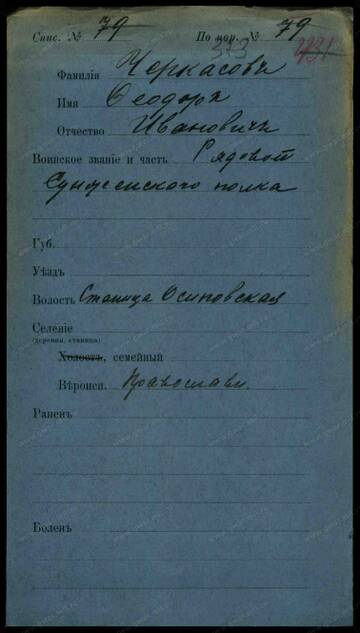 Спис. № 79 По пор. № 79
373
Фамилія Черкасовъ
Имя Ѳеодоръ
Отчество Ивановичъ
Воинское званіе и часть Рядовой
Сунженского полка
Губ.
Уѣздъ
Волость Станица Осиновская
Селеніе
(деревня, станица)
Холостъ, семейный
Вѣроисп. Православн.
Раненъ
Боленъ